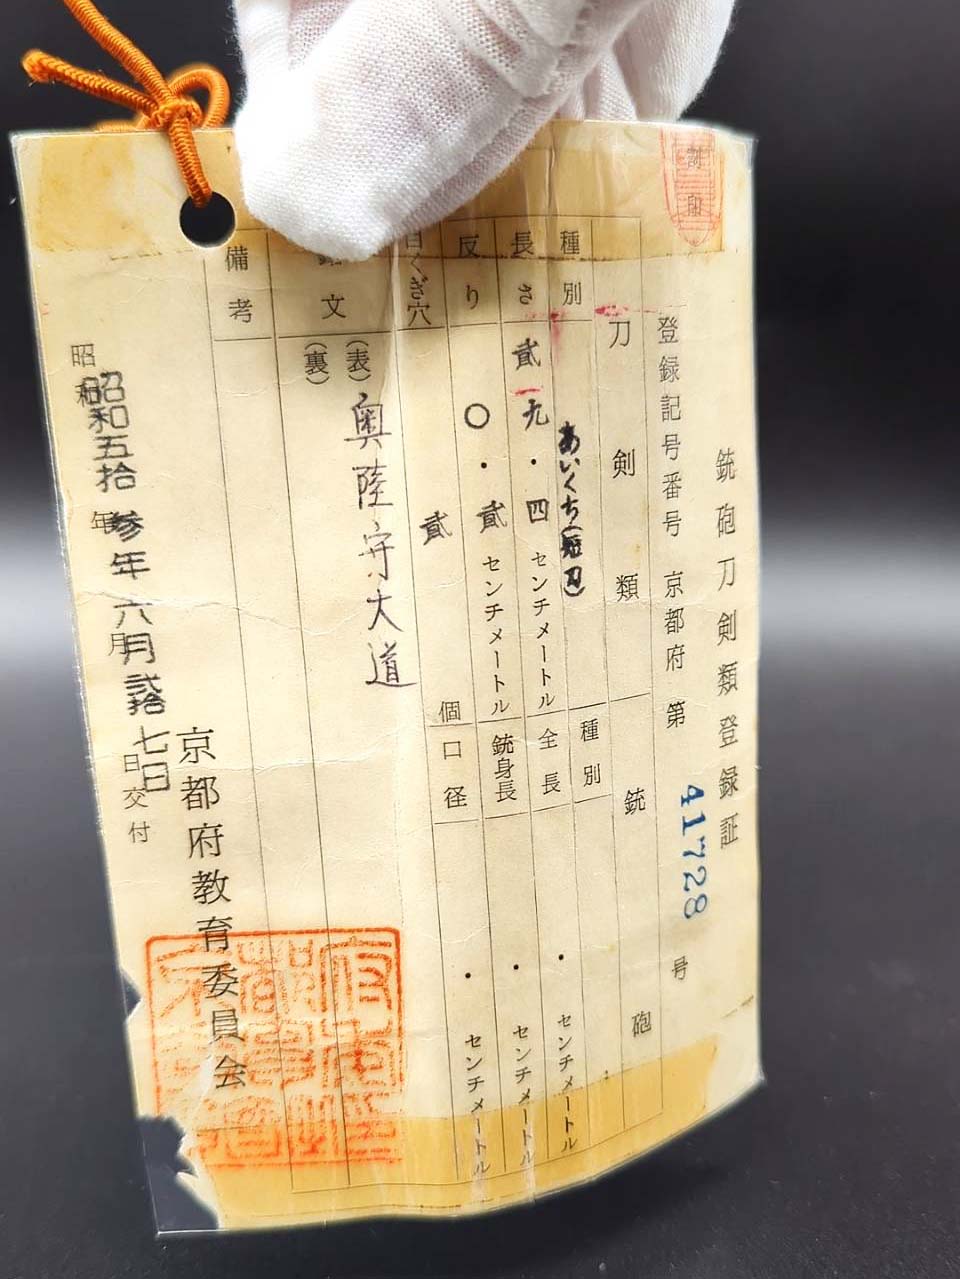 銃砲刀剣類登録証
登録記号番号 京都府 第 41728 号
刀剣類
銃砲
種別 あいくち(短刀)
長さ 貳九・四 センチメートル
反り 〇・貳 センチメートル
目くぎ穴 貳 個
銘文 (表) 奥陸守大道
(裏)
備考
種別 ・ センチメートル
全長 ・ センチメートル
銃身長 ・ センチメートル
口径
昭和 年 月 日交付
昭和五拾参年六月貳拾七日
京都府教育委員会
割印